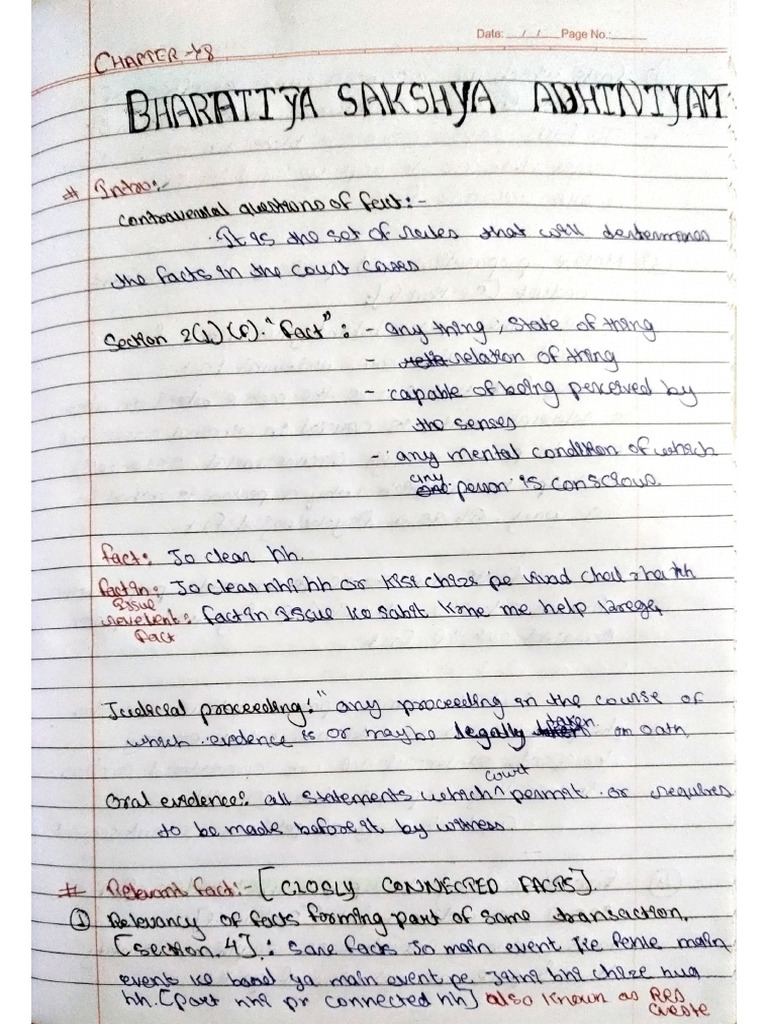 Date: / / Page No.:
CHAPTER → 8
BHARATIYA SAKSHYA ADHINIYAM
# Intro:-
controversial questions of fact:-
It is the set of rules that will determines
the facts in the court cases
Section 2(1)(f). "Fact": - any thing, State of thing
- relation of thing
- capable of being perceived by
the senses
- any mental condition of which
any person is conscious.
fact: Jo clear hh.
fact in Issue: Jo clear nhi hh or kisi chize pe vivad chal rha hh
revelent fact: fact in issue ko sabit krne me help krega,
Judicial proceeding: "any proceeding in the course of
which evidence is or maybe legally taken on oath,
Oral evidence: all statements which court permit or requires
to be made before it by witness.
# Relevant fact:- [CLOSLY CONNECTED FACTS].
① Relevancy of facts forming part of same transaction.
[Section. 4].: Sare facts Jo main event ke pehle main
event ke baad ya main event pe Jitni bhi chize hua
hh. [part nhi pr connected hh] also known as RES